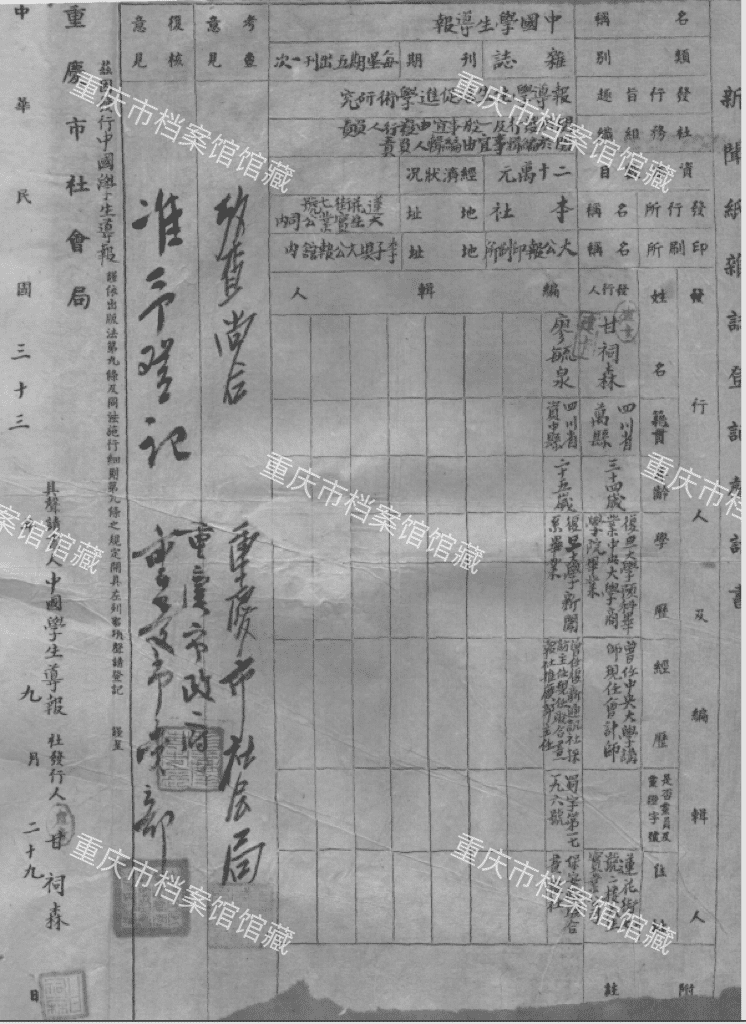 新聞紙雜誌登記聲請書
名稱 中國學生導報
類別 雜誌 刊期 每星期五出刊一次
發行旨趣 報導學生 促進學術研究
社務組織
資 目 二十萬元 經濟狀況
發行所 名稱 李社 地址 蓮花街七號大生實業公司內
印刷所 名稱 大公報印刷所 地址 李子壩大公報館內
發行人及編輯人
發行人 編輯人
姓名 甘祠森 廖毓泉
籍貫 四川省萬縣 四川省資中縣
年齡 三十四歲 二十五歲
學歷 復旦大學預科畢業中央大學商學院畢業 復旦大學新聞系畢業
經歷 曾任中央大學講師現任會計師
是否黨員及黨證字號 蜀字第一七一九六號
住址
附註
考查意見 核查尚合 重慶市社會局
復核意見 准予登記 重慶市政府 重慶市黨部
茲因發行中國學生導報謹依出版法第九條及同法施行細則第九條之規定開具左列事項聲請登記 謹呈
重慶市社會局
具聲請人中國學生導報社發行人 甘祠森
中華民國三十三年九月二十九日
重庆市档案馆馆藏
重庆市档案馆馆藏
重庆市档案馆馆藏
重庆市档案馆馆藏
重庆市档案馆馆藏
重庆市档案馆馆藏
重庆市档案馆馆藏